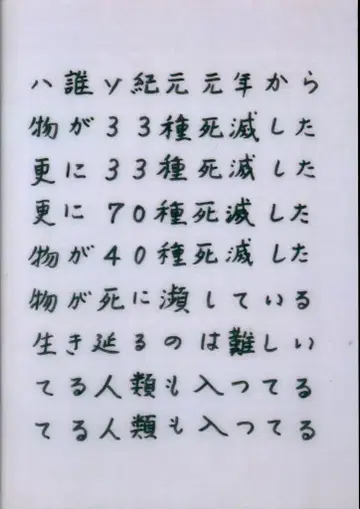 ハ誰ソ紀元元年から
物が33種死滅した
更に33種死滅した
更に70種死滅した
物が40種死滅した
物が死に瀕している
生き延るのは難しい
てる人類も入つてる
てる人類も入つてる